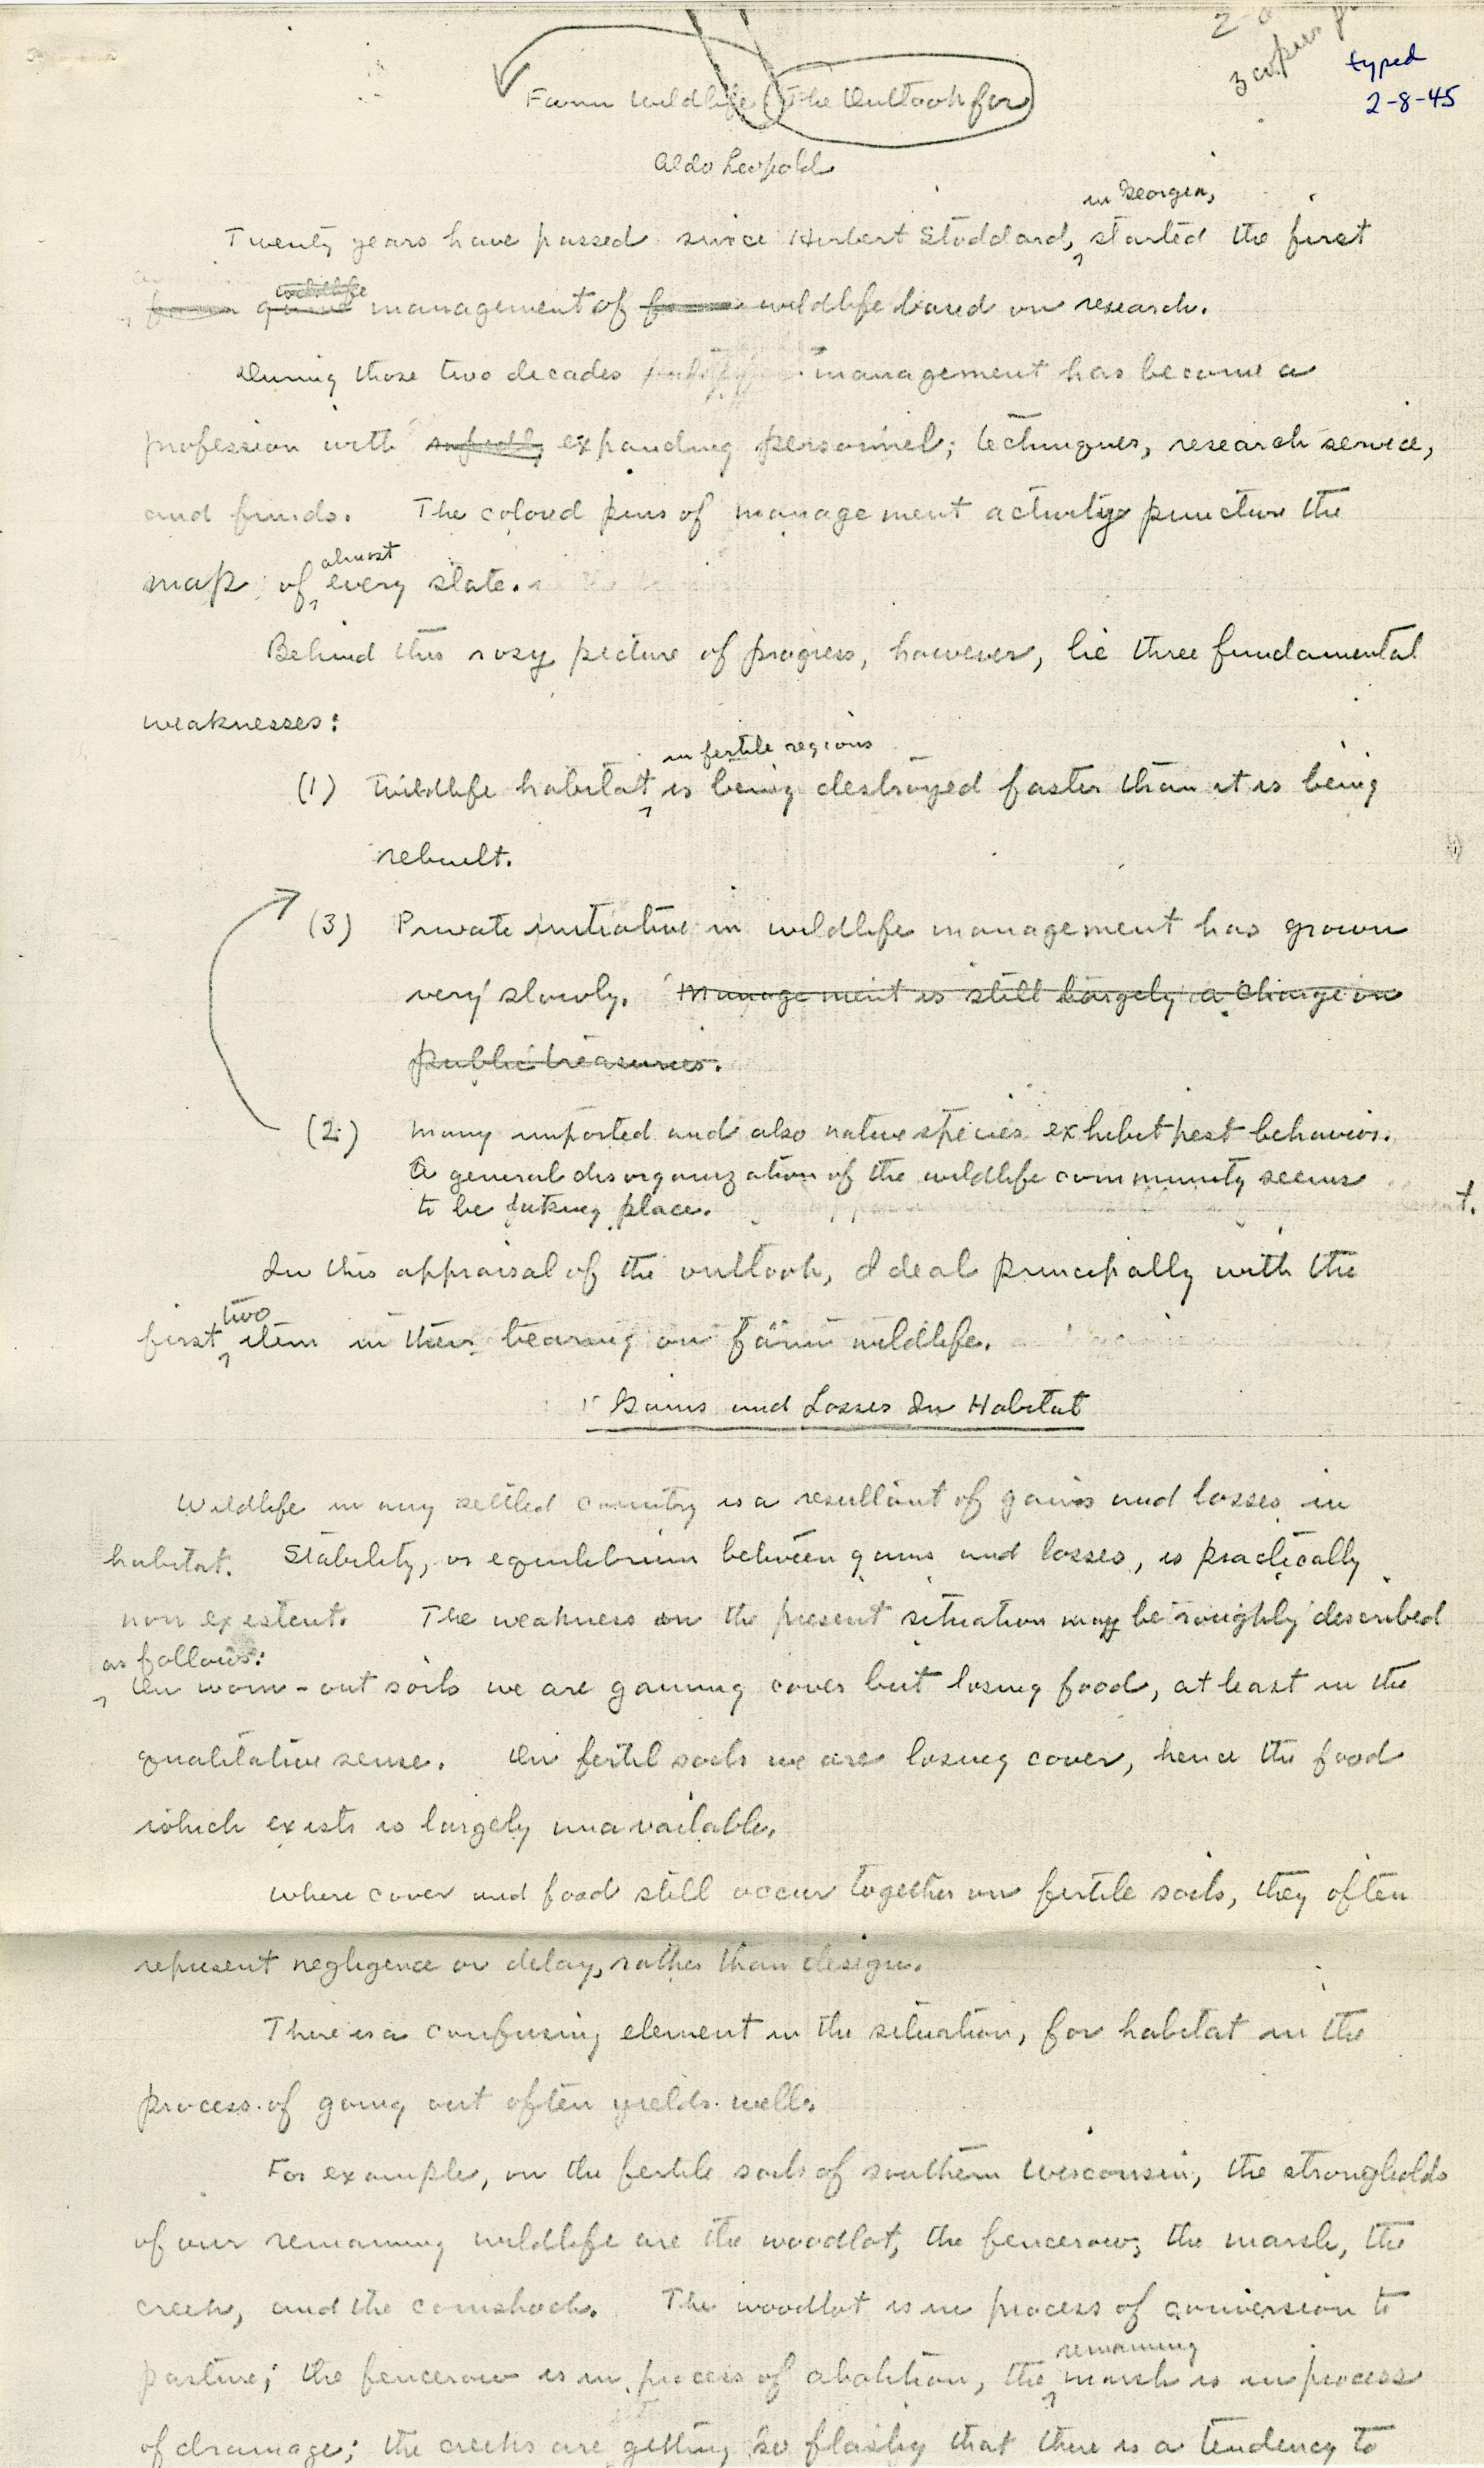 3 copies
typed
2-8-45
Farm Wildlife (The Outlook for
Aldo Leopold
in Georgia,
Twenty years have passed since Herbert Stoddard, started the first
wildlife
farm game management of farm wildlife based on research.
During those two decades management has become a
profession with rapidly expanding personnel, techniques, research service,
and funds. The colored pins of management activity puncture the
almost
map of every state.
Behind this rosy picture of progress, however, lie three fundamental
weaknesses:
in fertile regions
(1) Wildlife habitat is being destroyed faster than it is being
rebuilt.
(3) Private initiative in wildlife management has grown
very slowly. Management is still largely a charge on
public treasuries.
(2) Many imported and also native species exhibit pest behavior.
A general disorganization of the wildlife community seems
to be taking place.
In this appraisal of the outlook, I deal principally with the
two
first item in their bearing on farm wildlife.
Gains and Losses In Habitat
Wildlife in any settled country is a resultant of gains and losses in
habitat. Stability, or equilibrium between gains and losses, is practically
non existent. The weakness in the present situation may be roughly described
as follows:
On worn-out soils we are gaining cover but losing food, at least in the
qualitative sense. On fertil soils we are losing cover, hence the food
which exists is largely unavailable.
Where cover and food still occur together on fertile soils, they often
represent negligence or delay, rather than design.
There is a confusing element in the situation, for habitat in the
process of going out often yields well.
For example, on the fertile soils of southern Wisconsin, the strongholds
of our remaining wildlife are the woodlot, the fencerow, the marsh, the
creek, and the cornshock. The woodlot is in process of conversion to
remaining
pasture; the fencerow is in process of abolition, the marsh is in process
of drainage; the creeks are getting so flashy that there is a tendency to